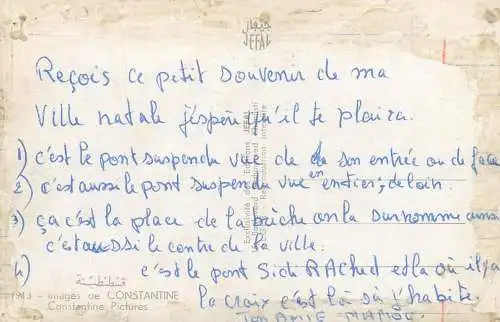 جيفال
JEFAL
Reçois ce petit souvenir de ma
ville natale j'espère qu'il te plaira.
1) c'est le pont suspendu vue de de son entrée ou de face
2) c'est aussi le pont suspendu vue en entier, de loin.
3) ça c'est la place de la brèche on la surnomme aussi
c'est aussi le centre de la ville.
4) c'est le pont Sidi RACHed et la où il y a
قسنطينة
1913 - Images de CONSTANTINE
Constantine Pictures
la croix c'est là où j'habite.
Ton AMIE
Exclusivité des Editions JEFAL
Reproduction interdite